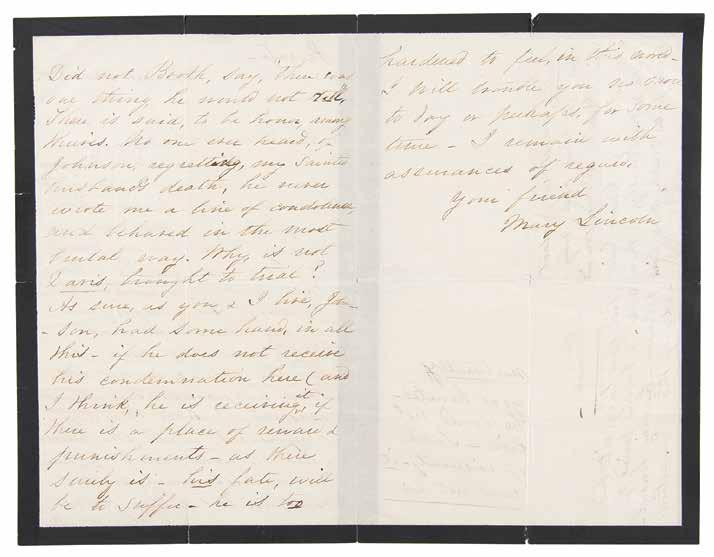 Did not Booth, say, "there was
one thing, he would not tell,
There is said, to be honor, among
thieves. No one ever heard, of
Johnson, regretting, my Sainted
husband's death, he never
wrote me a line of condolence,
and behaved in the most
brutal way. Why, is not
Davis, brought to trial?
As sure, as you & I live, John-
-son, had some hand, in all
this - if he does not receive
his condemnation here (and
I think, he is receiving it, if
there is a place of reward &
punishments - as there
surely is - his fate, will
be to suffer - he is too
hardened to feel, in this world -
I will trouble you no more
to day or perhaps, for some
time - I remain with
assurances of regard,
Your friend
Mary Lincoln